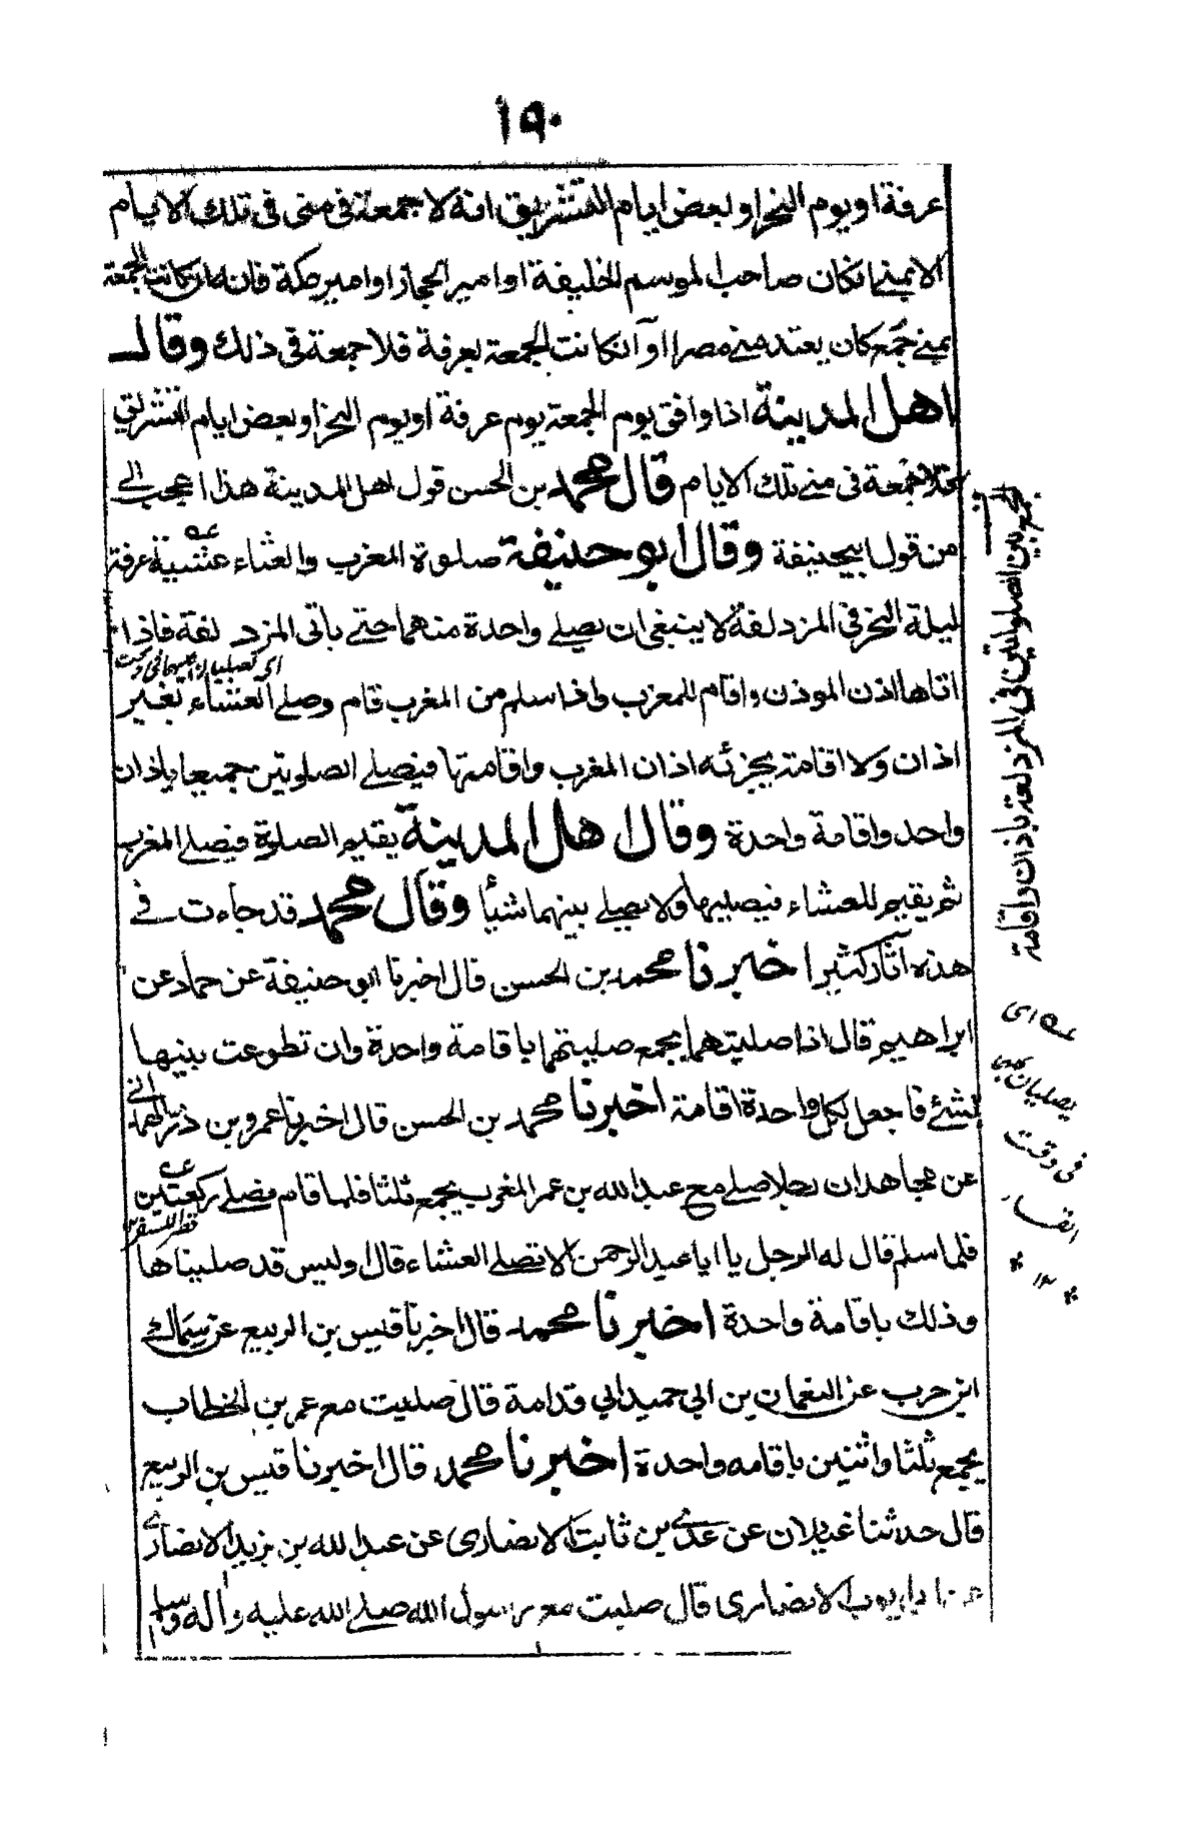 ١٩٠
عرفة او يوم النحر او بعض ايام التشريق انه لا جمعة فى منى فى تلك الايام
الا بمنى ان كان صاحب الموسم الخليفة او امير الحجاز او امير مكة فانه ان كانت الجمعة
بمنى جمع كان يعتد منى مصرا او ان كانت الجمعة بعرفة فلا جمعة فى ذلك وقال
اهل المدينة اذا وافق يوم الجمعة يوم عرفة او يوم النحر او بعض ايام التشريق
فلا جمعة فى منى تلك الايام قال محمد بن الحسن قول اهل المدينة هذا اعجب الى
من قول ابيحنيفة وقال ابو حنيفة صلوة المغرب والعشاء عشية عرفة
ليلة النحر فى المزدلفة لا ينبغى ان يصلى واحدة منهما حتى ياتى المزدلفة فاذا
اتاها اذن الموذن واقام للمغرب واذا سلم من المغرب قام وصلى العشاء بغير
اذان ولا اقامة يجزئه اذان المغرب واقامتها فيصلى الصلوتين جميعا باذان
واحد واقامة واحدة وقال اهل المدينة يقيم الصلوة فيصلى المغرب
ثم يقيم للعشاء فيصليها ولا يصلى بينهما شيأ وقال محمد قد جاءت فى
هذه آثار كثيرا اخبرنا محمد بن الحسن قال اخبرنا ابو حنيفة عن حماد عن
ابراهيم قال اذا صليتهما بجمع صليتهما باقامة واحدة وان تطوعت بينها
بشئ فاجعل لكل واحدة اقامة اخبرنا محمد بن الحسن قال اخبرنا عمرو بن ذر الهمدانى
عن مجاهد ان رجلا صلى مع عبد الله بن عمر المغرب بجمع ثلثا فلما قام فصلى ركعتين
فلما سلم قال له الرجل يا ابا عبد الرحمن الا تصلى العشاء قال اوليس قد صليناها
وذلك باقامة واحدة اخبرنا محمد قال اخبرنا قيس بن الربيع عن سماك
ابن حرب عن النعمان بن ابى حميد ابى قدامة قال صليت مع عمر بن الخطاب
بجمع ثلثا واثنين باقامه واحدة اخبرنا محمد قال اخبرنا قيس بن الربيع
قال حدثنا غيلان عن عدى بن ثابت الانصارى عن عبد الله بن يزيد الانصارى
عن ابى ايوب الانصارى قال صليت مع رسول الله صلى الله عليه واله وسلم
الجمع بين الصلواتين فى المزدلفة باذان واقامة
عه اى
يصليان
فى وقت
١٢